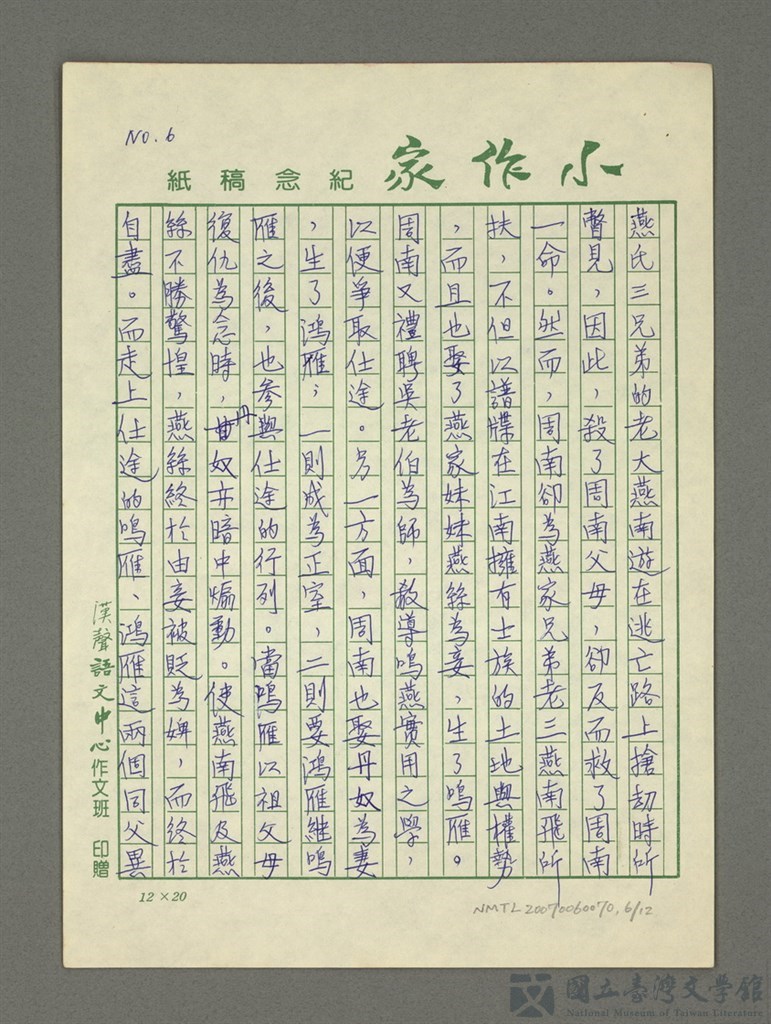 NO. 6
小作家 紀念稿紙
燕氏三兄弟的老大燕南遊在逃亡路上搶劫時所
瞥見，因此，殺了周南父母，卻反而救了周南
一命。然而，周南卻為燕家兄弟老三燕南飛所
扶，不但以譜牒在江南擁有士族的土地與權勢
，而且也娶了燕家妹妹燕絲為妾，生了鳴雁。
周南又禮聘吳老伯為師，教導鳴燕實用之學，
以便爭取仕途。另一方面，周南也娶丹奴為妻
，生了鴻雁；一則成為正室，二則要鴻雁繼鳴
雁之後，也參與仕途的行列。當鳴雁以祖父母
復仇為念時，丹奴亦暗中煽動。使燕南飛及燕
絲不勝驚惶，燕絲終於由妾被貶為婢，而終於
自盡。而走上仕途的鳴雁、鴻雁這兩個同父異
漢聲語文中心作文班 印贈
12×20
NMTL20070060070,6/12
國立臺灣文學館
National Museum of Taiwan Literature